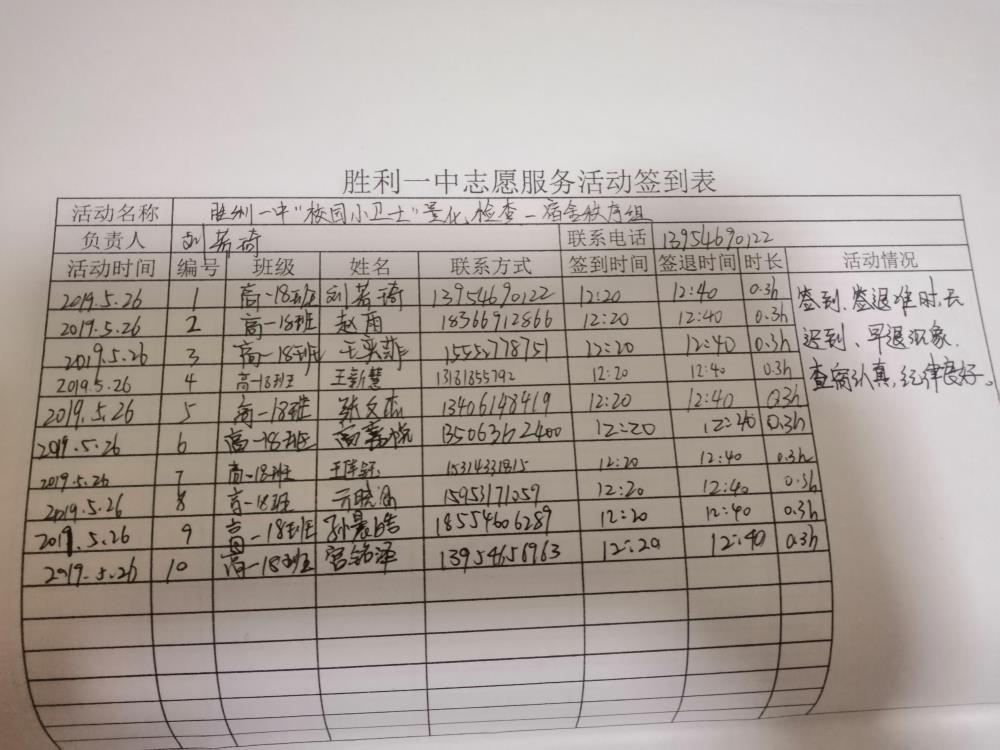 胜利一中志愿服务活动签到表
活动名称 胜利一中"校园小卫士"量化检查-宿舍秩序组
负责人 刘若琦 联系电话 13954690122
活动时间 编号 班级 姓名 联系方式 签到时间 签退时间 时长 活动情况
2019.5.26 1 高一18班 刘若琦 13954690122 12:20 12:40 0.3h 签到、签退准时,无
2019.5.26 2 高一18班 赵雨 18366912866 12:20 12:40 0.3h
2019.5.26 3 高一18班 王奕菲 15552778751 12:20 12:40 0.3h 迟到、早退现象.
2019.5.26 4 高一18班 王新慧 13181855792 12:20 12:40 0.3h 查宿认真,纪律良好。
2019.5.26 5 高一18班 张文杰 13406148419 12:20 12:40 0.3h
2019.5.26 6 高一18班 13506362400 12:20 12:40 0.3h
2019.5.26 7 高一18班 15314331815 12:20 12:40 0.3h
2019.5.26 8 高一18班 15953171059 12:20 12:40 0.3h
2019.5.26 9 高一18班 18554606289 12:20 12:40 0.3h
2019.5.26 10 高一18班 宫铭泽 13954656963 12:20 12:40 0.3h